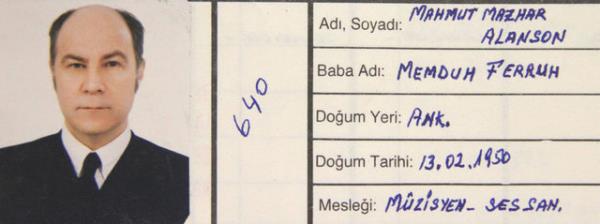 640
Adı, Soyadı: MAHMUT MAZHAR
ALANSON
Baba Adı: MEMDUH FERRUH
Doğum Yeri: ANK.
Doğum Tarihi: 13.02.1950
Mesleği: MÜZİSYEN- SES SAN.